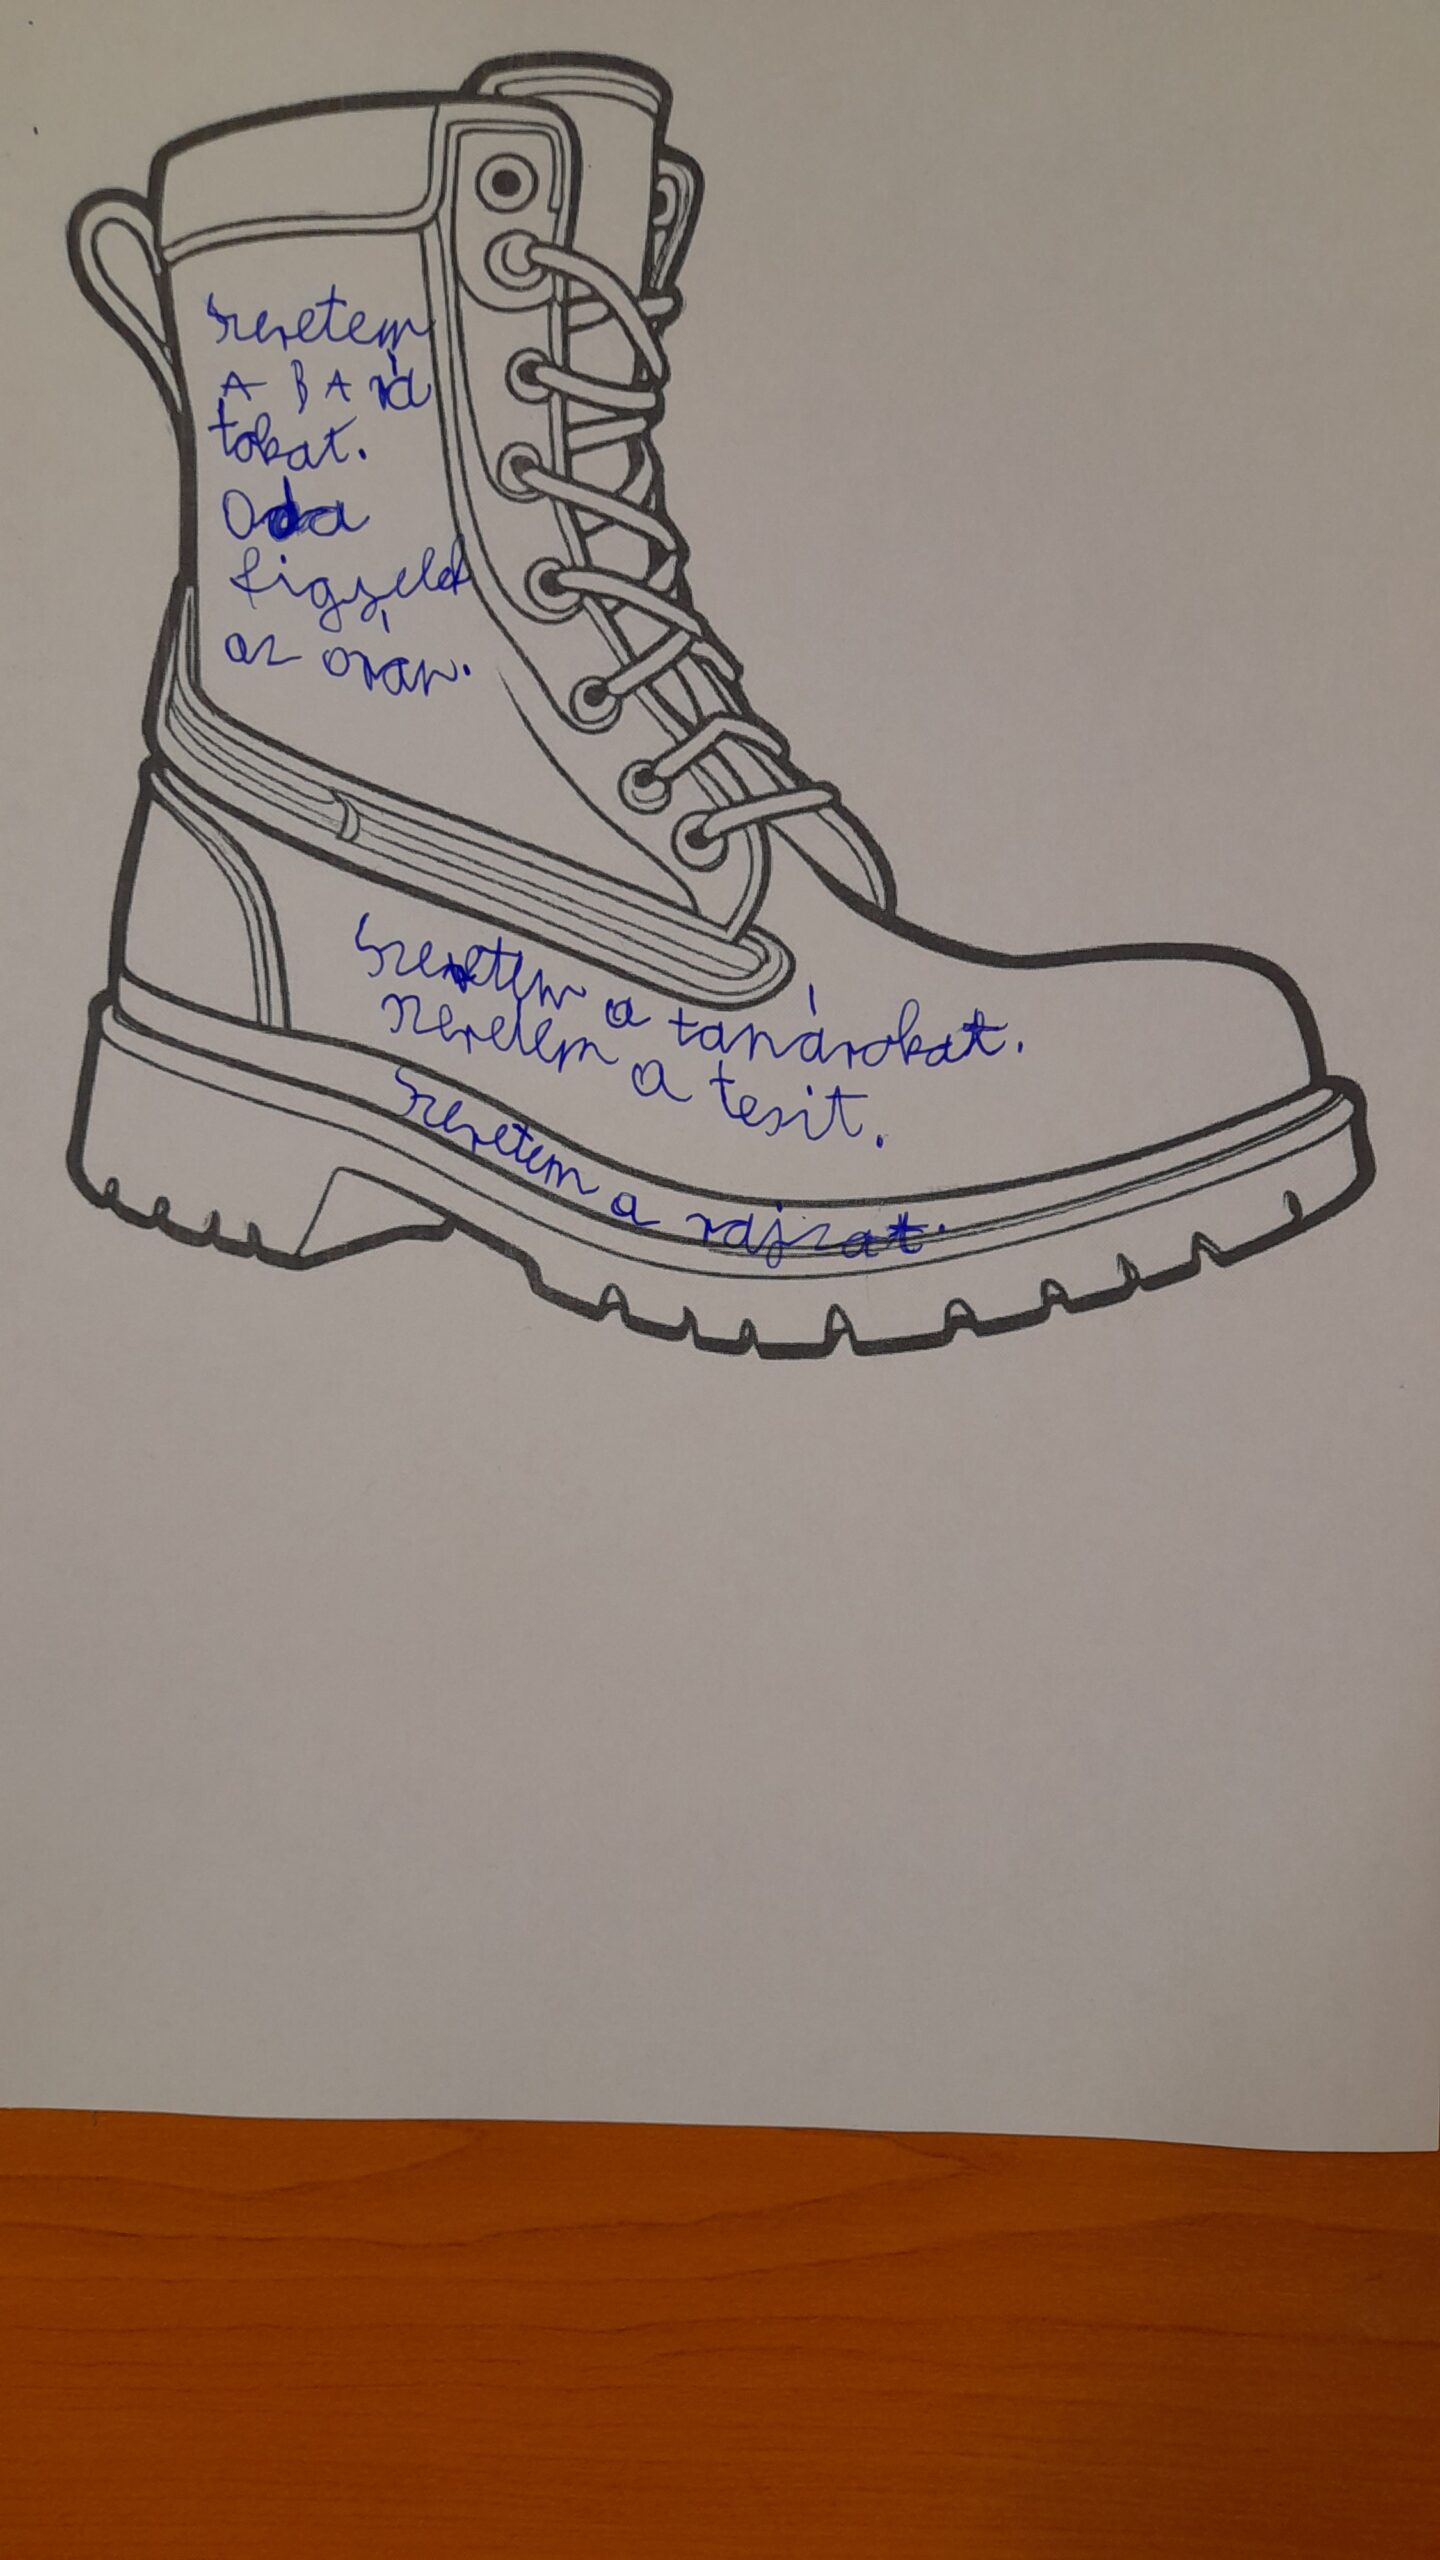 szeretem
A BArá
tokat.
Oda
figyelek
az órán.
Szeretem a tanárokat.
szeretem a tesit.
szeretem a rajzat.